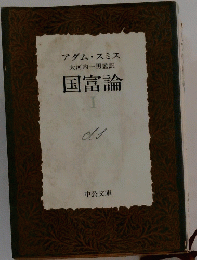 アダム・スミス
大河内一男監訳
国富論
I
中公文庫